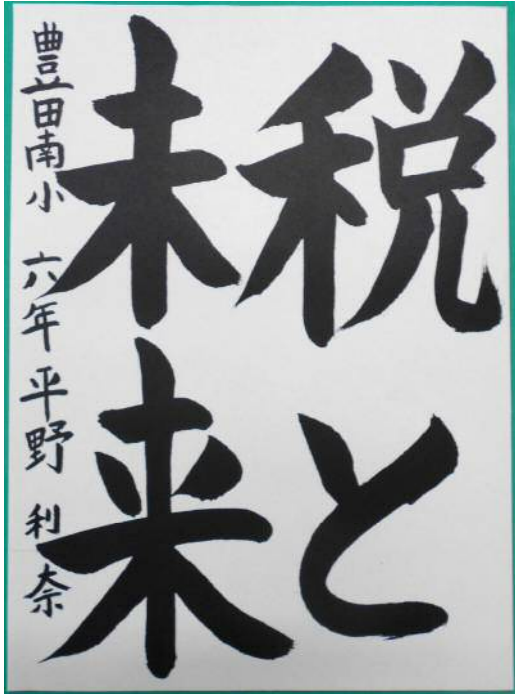 税と
未来
豊田南小 六年 平野 利奈